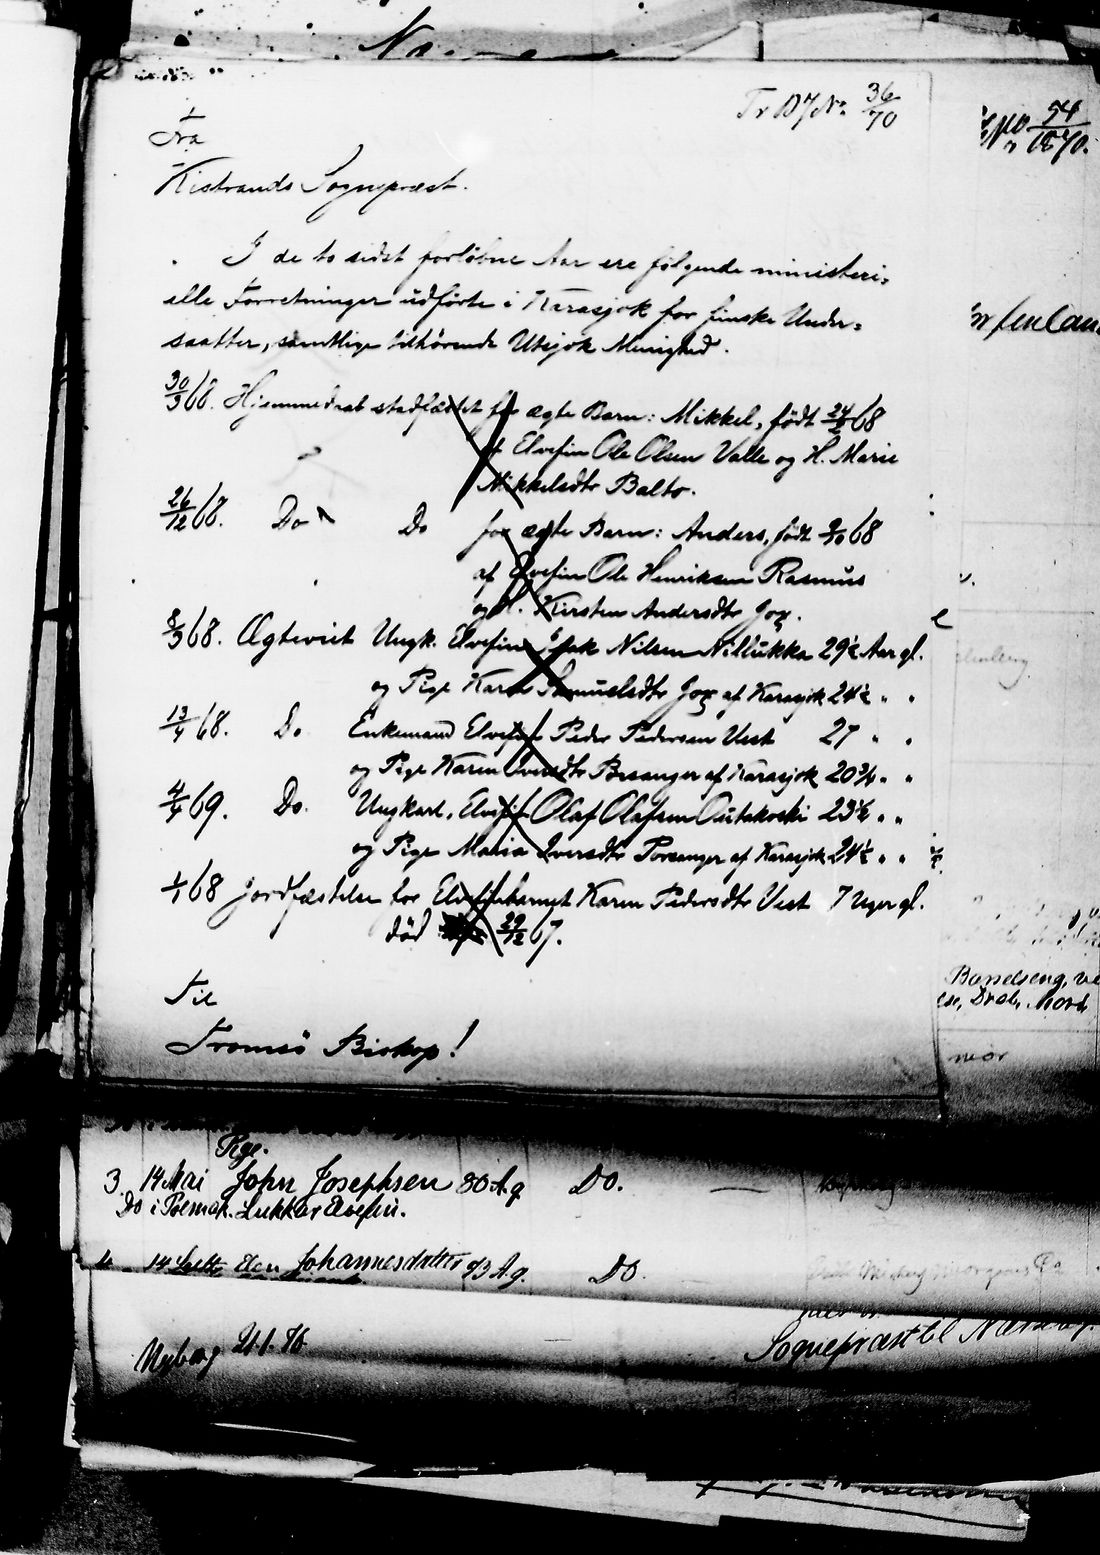 Tr B J No 36/70
54/1870.
Fra
Kistrands Sognepræst.
I de to sidst forløbne Aar ere følgende ministeri-
elle Forretninger udførte i Karasjok for finske Under-
saatter, samtlige tilhørende Utsjok Menighed.
30/3 68. Hjemmedaab stadfæstet for ægte Barn: Mikkel, født 24/2 68
af Elvefin Ole Olsen Valle og H. Marie
Mikkelsdtr Balto.
26/12 68. Do Do for ægte Barn: Anders, født 9/10 68
af Elvefin Ole Henriksen Rasmus
og H. Kirsten Andersdtr Jox.
8/3 68. Ægteviet Ungk. Elvefin Isak Nilsen Nillukka 29½ Aar gl.
og Pige Karen Samuelsdtr Jox af Karasjok 24½ " "
13/4 68. Do Enkemand Elvefin Peder Pedersen Vest 27 " "
og Pige Karen Iversdtr Porsanger af Karasjok 20¾ " "
4/4 69. Do. Ungkarl, Elvefin Olaf Olafsen Outakoski 23½ " "
og Pige Maria Iversdtr Porsanger af Karasjok 24½ " "
1/1 68 Jordfæstelse for Elvefinbarnet Karen Pedersdtr Vest 7 Uger gl.
død 29/12 67.
Til
Tromsø Biskop!
Pige.
3. 14 Mai John Josephsen 80 A. g. Do. —
Do i Polmak. Lukkar Elvefin.
4 14 Johannesdatter A. g. Do.
Nyborg 21.1.76
Sognepræst til